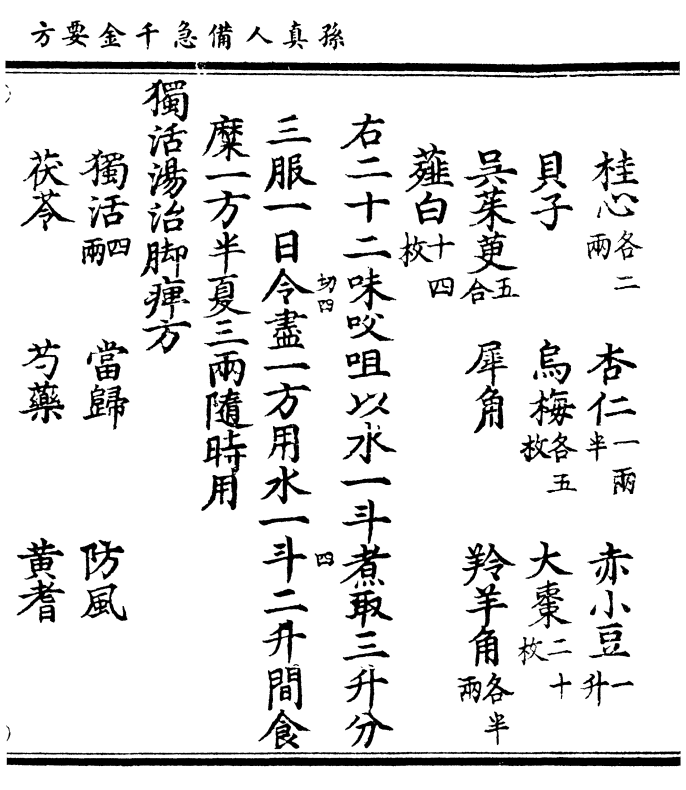 孫真人備急千金要方
桂心各二兩 杏仁一兩半 赤小豆一升
貝子 烏梅各五枚 大棗二十枚
吳茱萸五合 犀角 羚羊角各半兩
薤白十四枚
右二十二味咬咀以水一斗煮取三升分
切四 四
三服一日令盡一方用水一斗二升間食
糜一方半夏三兩隨時用
獨活湯治脚痺方
獨活四兩 當歸 防風
茯苓 芍藥 黃耆